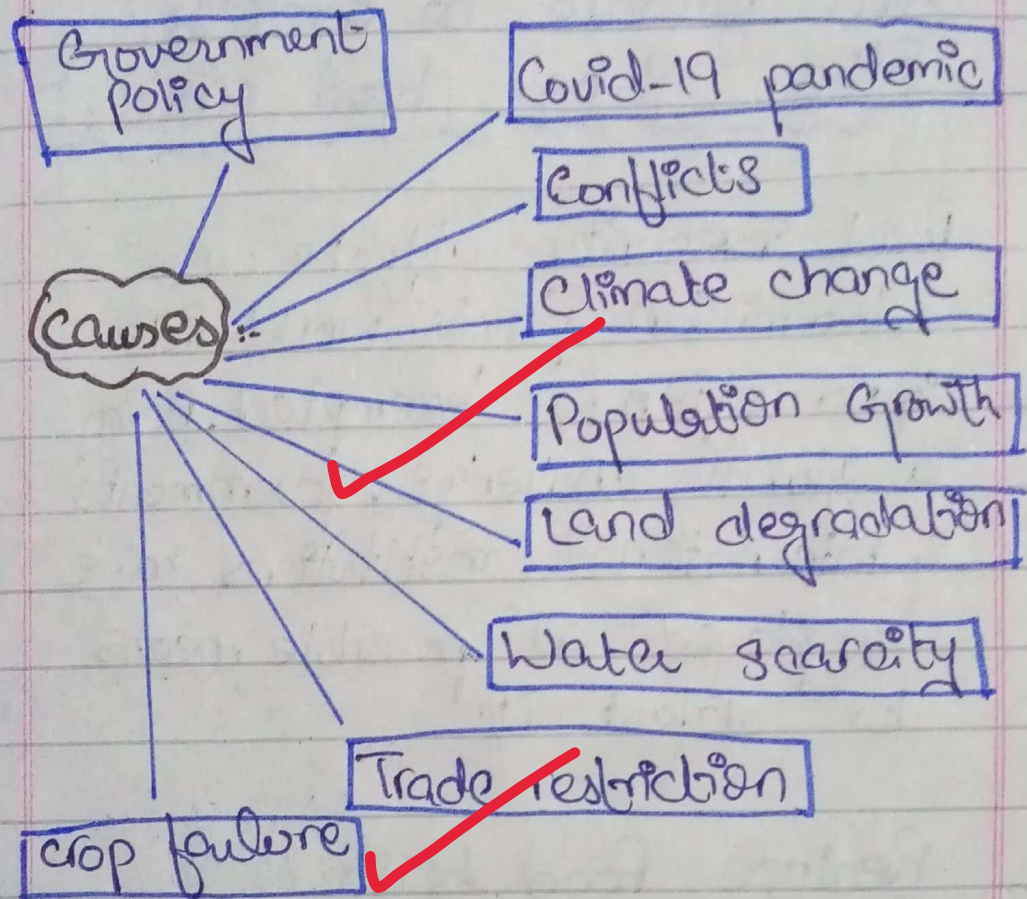 Government
policy
Covid-19 pandemic
Conflicts
Causes :-
Climate change
Population Growth
Land degradation
Water scarcity
Trade restriction
crop failure